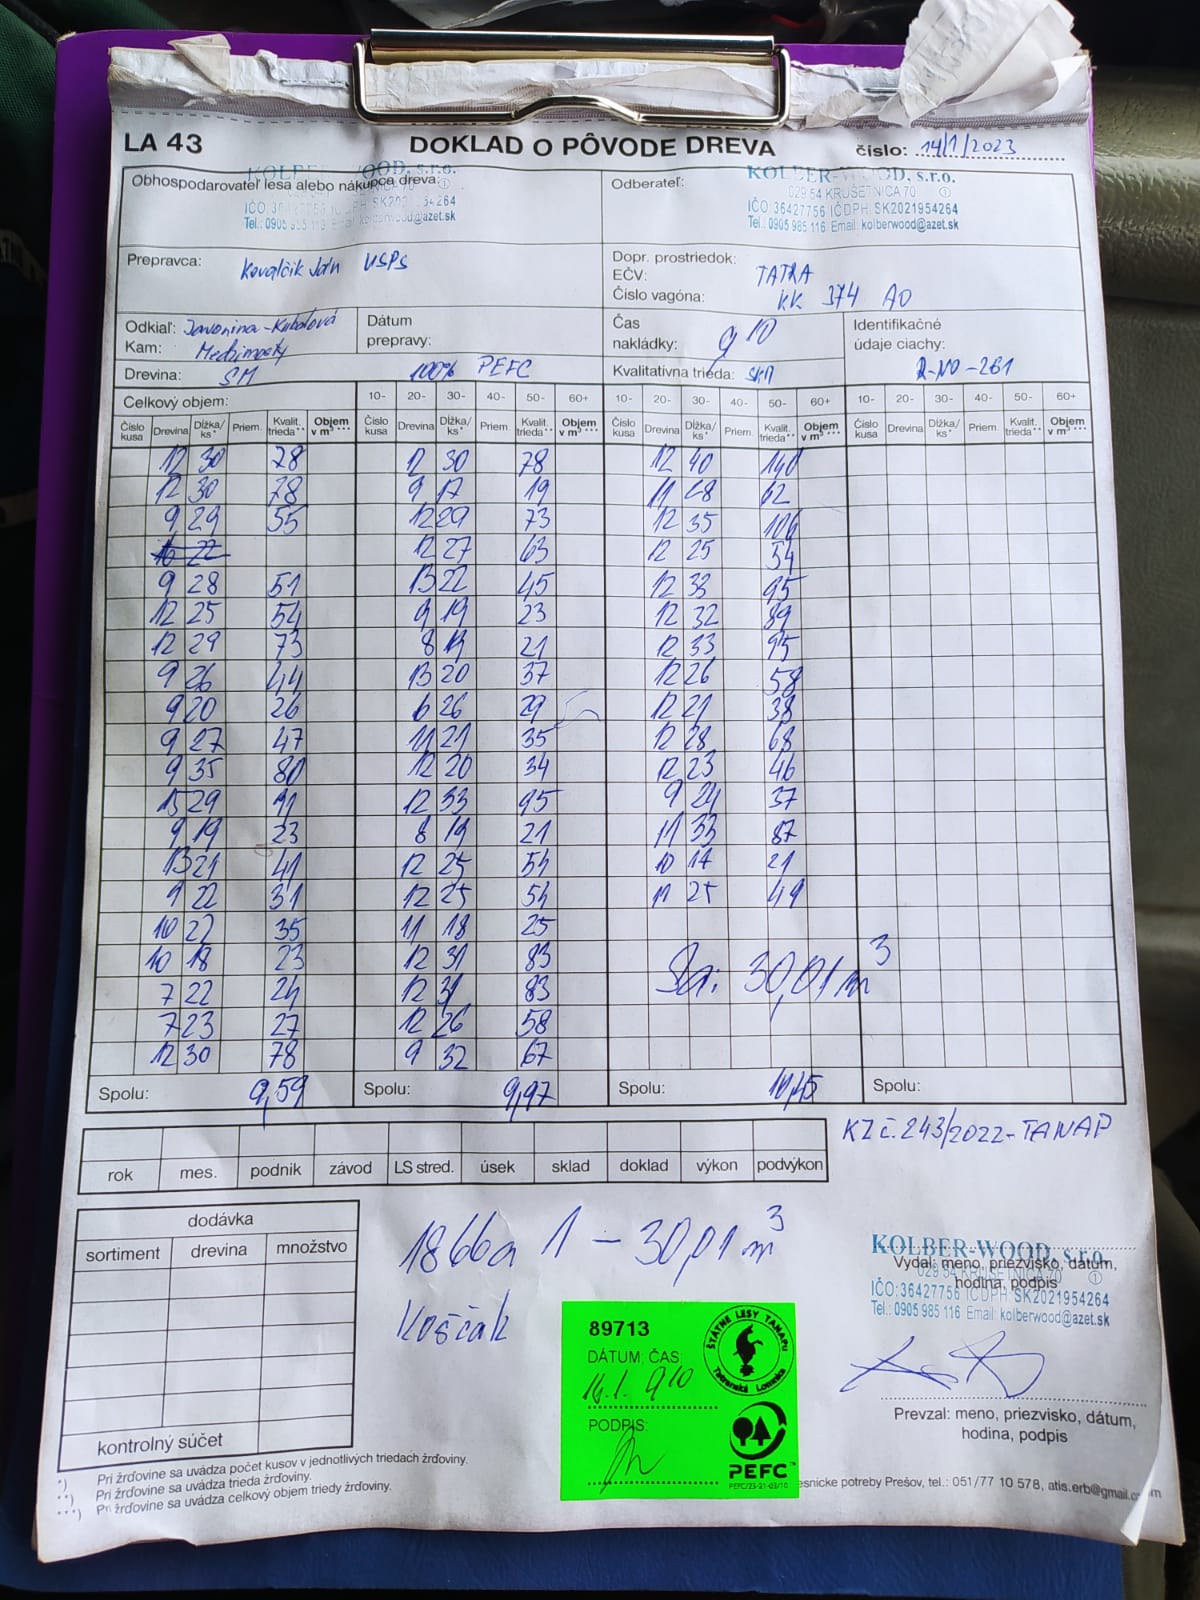 LA 43
DOKLAD O PÔVODE DREVA
číslo: 14/1/2023
Obhospodarovateľ lesa alebo nákupca dreva:
KOLBER-WOOD, s.r.o.
IČO: 36427756 IČDPH: SK2021954264
Tel.: 0905 985 116 Email: kolberwood@azet.sk
Odberateľ:
KOLBER-WOOD, s.r.o.
029 54 KRUŠETNICA 70 ①
IČO: 36427756 IČDPH: SK2021954264
Tel.: 0905 985 116 Email: kolberwood@azet.sk
Prepravca: Kovalčik Ján USPS
Dopr. prostriedok:
EČV: TATRA
Číslo vagóna: KK 374 AO
Odkiaľ: Javorina-Kubalová
Kam:
Dátum
prepravy:
Čas
nakládky: 9 10
Identifikačné
údaje ciachy:
R-NO-261
Drevina: SM 100% PEFC
Kvalitatívna trieda:
Celkový objem:
10- 20- 30- 40- 50- 60+ 10- 20- 30- 40- 50- 60+ 10- 20- 30- 40- 50- 60+
Číslo kusa Drevina Dĺžka/ks* Priem. Kvalit. trieda** Objem v m³*** Číslo kusa Drevina Dĺžka/ks* Priem. Kvalit. trieda** Objem v m³*** Číslo kusa Drevina Dĺžka/ks* Priem. Kvalit. trieda** Objem v m³*** Číslo kusa Drevina Dĺžka/ks* Priem. Kvalit. trieda** Objem v m³***
12 30 78 12 30 78 12 40 140
12 30 78 9 17 19 11 28 62
9 29 55 12 29 73 12 35 106
16 22 12 27 63 12 25 54
9 28 51 13 22 45 12 33 95
12 25 54 9 19 23 12 32 89
12 29 73 8 19 21 12 33 95
9 26 44 13 20 37 12 26 58
9 20 26 6 26 29 12 21 38
9 27 47 11 21 35 12 28 68
9 35 80 12 20 34 12 23 46
15 29 91 12 33 95 9 24 37
9 19 23 8 19 21 11 33 87
13 21 41 12 25 54 10 17 21
9 22 31 12 25 54 11 25 49
10 22 35 11 18 25
10 18 23 12 31 83
7 22 24 12 31 83
7 23 27 12 26 58
12 30 78 9 32 67
Sa: 30,01 m³
Spolu: 9,59 Spolu: 9,97 Spolu: 10,45 Spolu:
KZ č. 243/2022-TANAP
rok mes. podnik závod LS stred. úsek sklad doklad výkon podvýkon
dodávka
sortiment drevina množstvo
kontrolný súčet
1866a 1 - 30,01 m³
Koščák
89713
DÁTUM, ČAS:
14.1. 9 10
PODPIS:
ŠTÁTNE LESY TANAPu
Tatranská Lomnica
PEFC™
PEFC/23-21-03/10
KOLBER-WOOD, s.r.o.
Vydal: meno, priezvisko, dátum,
hodina, podpis
029 54 KRUŠETNICA 70 ①
IČO: 36427756 IČDPH: SK2021954264
Tel.: 0905 985 116 Email: kolberwood@azet.sk
Prevzal: meno, priezvisko, dátum,
hodina, podpis
*) Pri žrďovine sa uvádza počet kusov v jednotlivých triedach žrďoviny.
**) Pri žrďovine sa uvádza trieda žrďoviny.
***) Pri žrďovine sa uvádza celkový objem triedy žrďoviny.
esnicke potreby Prešov, tel.: 051/77 10 578, atis.erb@gmail.com